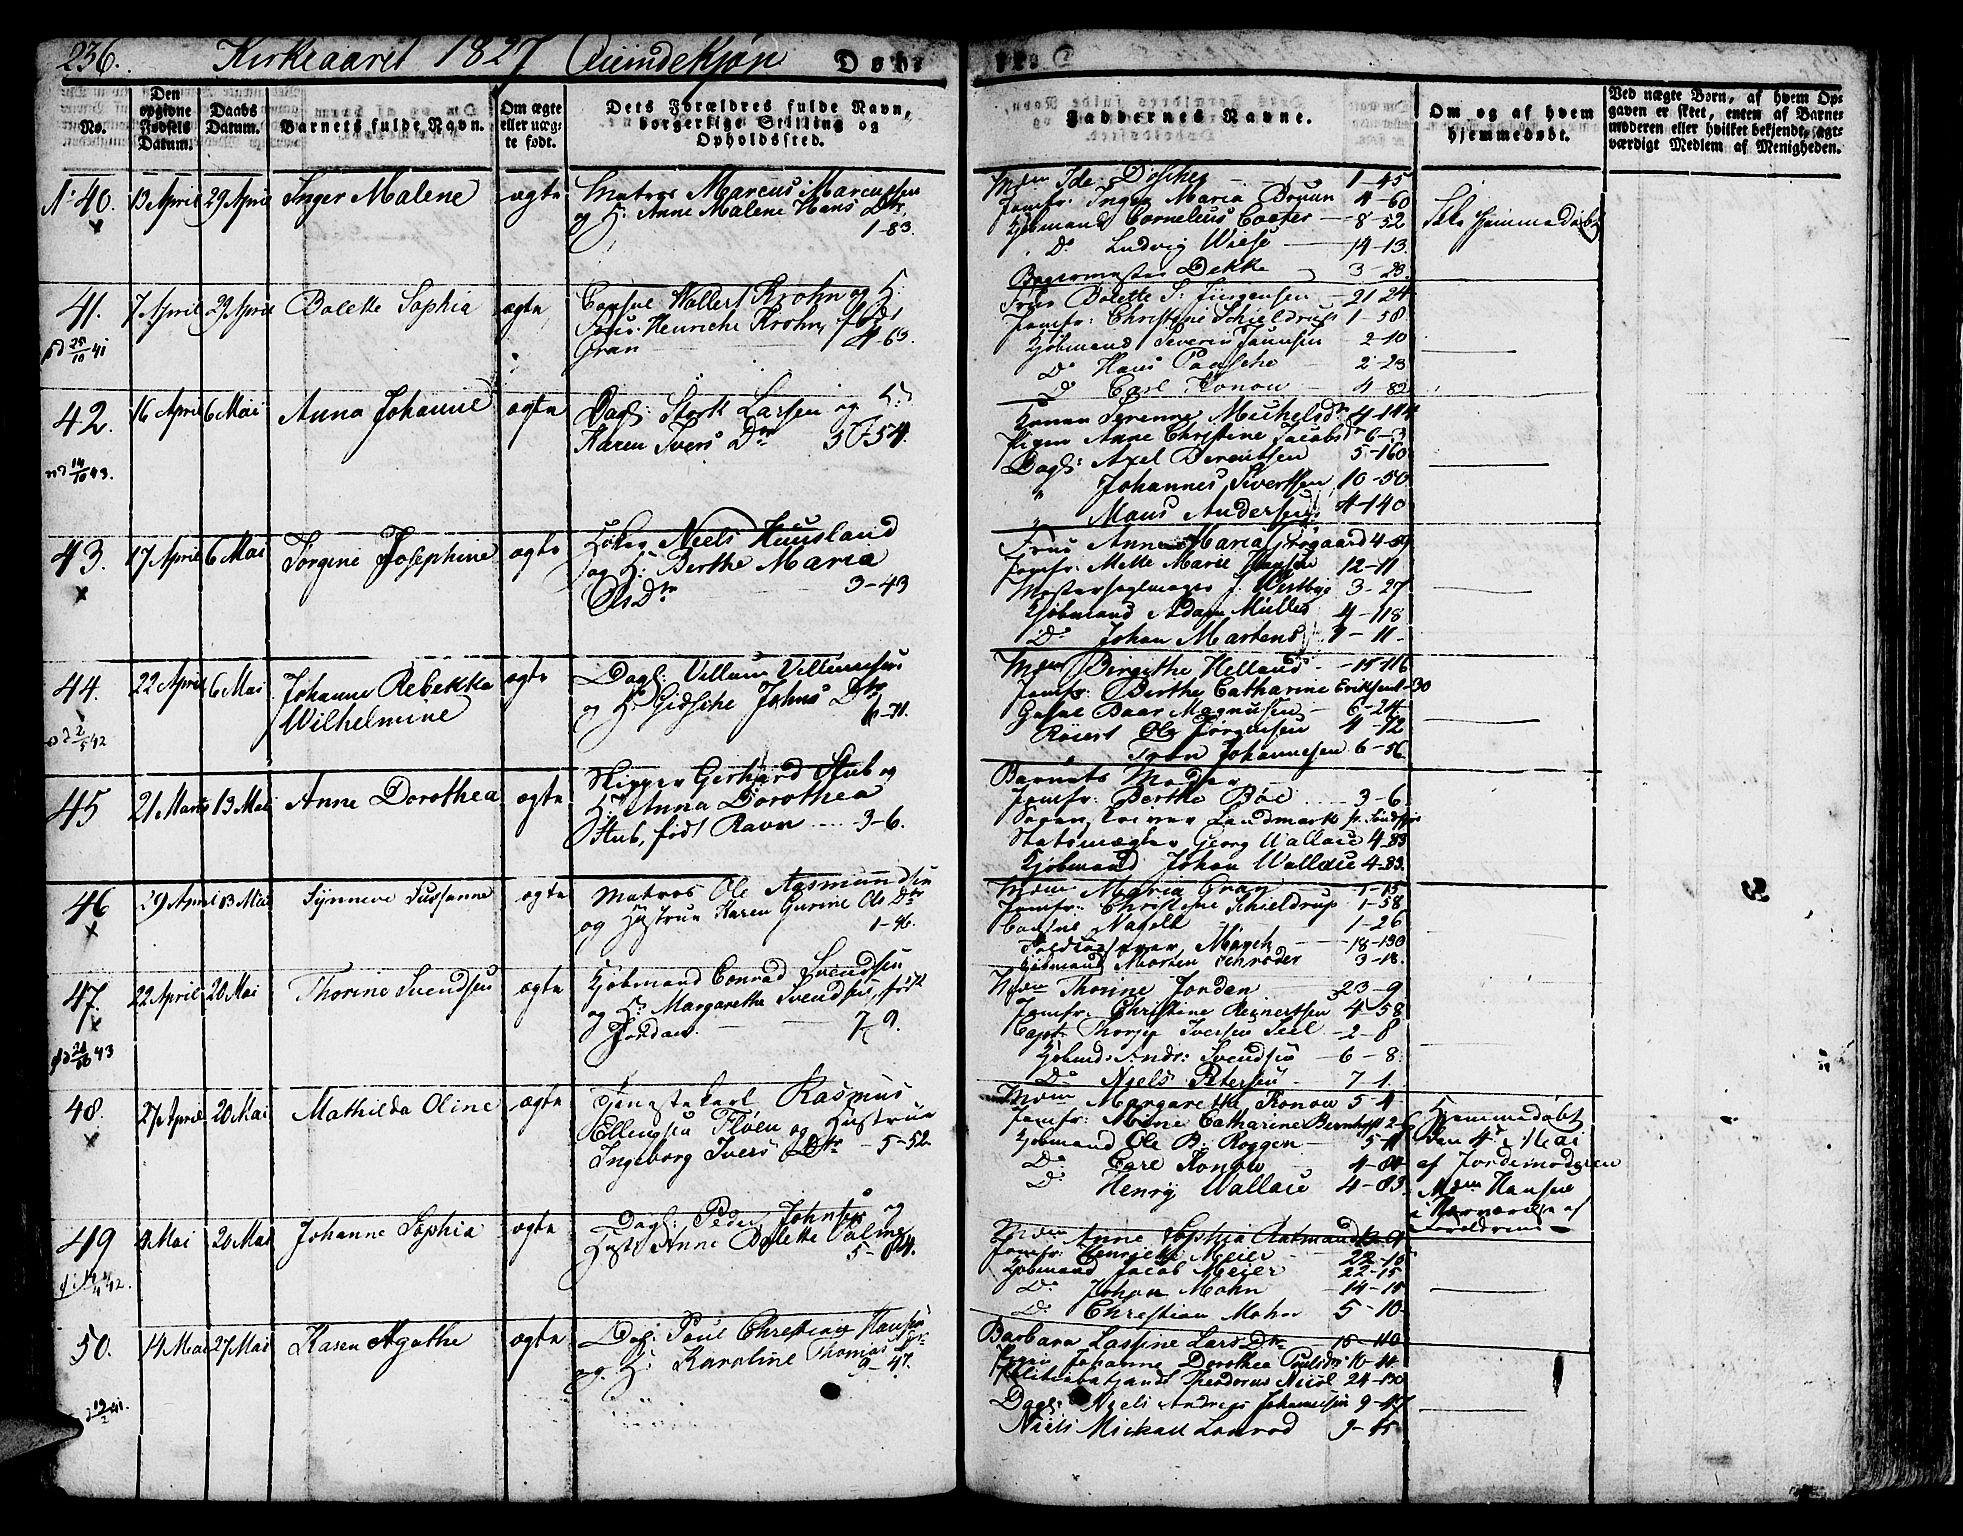 236. Kirkeaaret 1827 Qvindekjøn Døb-
No.
Den opgivne Fødsels Datum.
Daabs Datum.
Barnets fulde Navn.
Om ægte eller uægte født.
Dets Forældres fulde Navn, borgerlige Stilling og Opholdssted.
Faddernes Navne.
Om og af hvem hjemmedøbt.
Ved uægte Børn, af hvem Opgaven er skeet, enten af Barnemoderen eller hvilket bekjendt, agtværdigt Medlem af Menigheden.
No 40. 13 April 29 April Inger Malene ægte
Matros Marcus Marcussen
og H: Anne Malene Hans Dtr,
1-83.
Mdm Ide Döscher 1-45
Jomfr: Inger Maria Bruun 4-60
Kjøbmand Cornelius 8-52
Do Ludvig Wiese 14-13
Bagermester Dekke 3-23.
Ikke Hjemmedøbt
41. 7 April 29 April Bolette Sophia ægte
Consul Wollert Krohn og H:
Henriche Krohn, fød
Gran 4-63.
Frue Bolette S: Jürgensen 21-24
Jomfr: Christine Schieldrup 1-58
Kjøbmand Severin Jannsen 2-10
Do Hans Paasche 2-23
Do Carl Konow 4-82
42. 16 April 6 Mai Anna Johanne ægte
Dagl: Stork Larsen og H:
Karen Ivers Dtr
Konen Serenne Michelsdr
Pigen Anne Christine Jacobsdr 6-3
Dagl: Axel Berentsen 5-160
Johannes Sivertsen 10-50
Mons Andersen 4-140
43. 17 April 6 Mai Jørgine Josephine ægte
Høker Niels Huusland
og H: Berthe Maria
Ols Dtr 3-43
Frue Anne Maria
Jomfr: Mette Marie Hansen 12-11
Mesterseglmager J. Westbye 3-27
Kjøbmand Adam Müller 4-118
Do Johan Martens
44. 22 April 6 Mai Johanne Rebekka
Wilhelmine ægte
Dagl: Villum Villumsen
og H: Gidsche Johns Dtr
6-71.
Mdm Birgithe Helland 15-116
Jomfr: Berthe Catharine Eriksen 1-30
Baar Magnusen 6-24
Ole Jørgensen 4-12
Johannesen 6-56
45 21 Marts 13 Mai Anne Dorothea ægte
Skipper Gerhard Stub og
H: Anna Dorothea
Stub, født Ravn 3-6.
Barnets Moder
Jomfr: Berthe Böe 3-6
Landmark
Georg Wallace 4-83
Kjøbmand Johan Wallace 4-83.
46 29 April 13 Mai Synneve Susanne ægte
Matros Ole Aasmundsen
og Hustrue Karen Gurine Ols Dtr
1-46.
Mdm Maria Gran 1-15
Jomfr: Christine Schieldrup 1-58
1-26
18-130
Kjøbmand Morten Schrøder 3-18.
47. 22 April 20 Mai Thorine Svendsen ægte
Kjøbmand Conrad Svendsen
og H: Margarethe Svendsen, født
Jordan. 7-9.
Mdm Thorine Jordan 23-9
Jomfr: Christine Reinertsen 4-58
Capt: Iversen 2-8
Kjøbmd: Andr: Svendsen 6-8
Do Niels Petersen 7-1.
48. 27 April 20 Mai Mathilda Oline ægte
Tjenestekarl Rasmus
Ellingsen Fløen og Hustrue
Ingeborg Ivers Dtr 5-52
Mdm Margarethe Konow 5-4
Jomfr: Mine Catharine
Kjøbmand Ole B: Roggen
Do Carl Konow 4-84
Do Henry Wallace 4-83.
Hjemmedøbt
den 4de Mai
af Jordemoderen
Mdm Hansen
i Nærværelse af
Forældrene
49 9 Mai 20 Mai Johanne Sophia ægte
Dagl: Peder Johnsen og
Hust: Anne Bolette
Mdm Anne Sophia
Jomfr: Henriette Meier 22-15
Kjøbmand Jacob Meier 22-15
Do Johan Mohn 14-15
Do Christian Mohn 5-10
50. 14 Mai 27 Mai Karen Agathe ægte
Dagl: Paul Christian Hansen
og H: Karoline Thomas Dtr
9-47.
Barbara Lassine Lars Dtr 18-110
Pigen Johanne Dorothea Poulsdr
Theodorus Nicol 24-130
Dagl: Niels Andreas Johannesen 9-47
Niels Mickael Lonrod 9-45